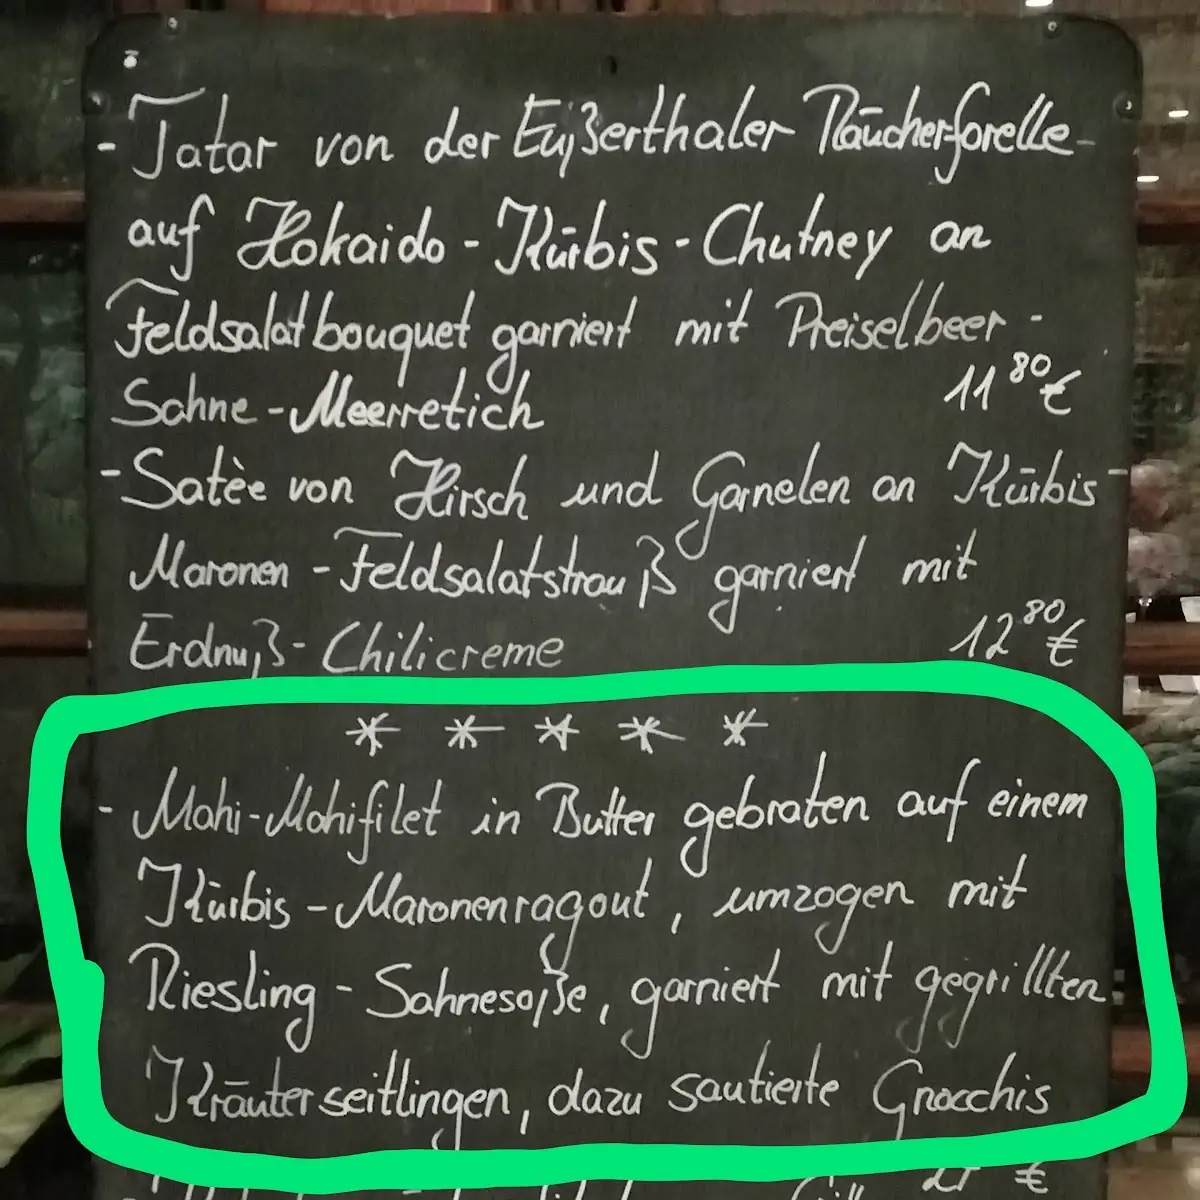 - Tatar von der Eußerthaler Räucherforelle
auf Hokaido - Kürbis - Chutney an
Feldsalatbouquet garniert mit Preiselbeer -
Sahne - Meerretich 11 80 €
- Satèe von Hirsch und Garnelen an Kürbis -
Maronen - Feldsalatstrauß garniert mit
Erdnuß - Chilicreme 12 80 €
* * * * *
- Mahi - Mahifilet in Butter gebraten auf einem
Kürbis - Maronenragout, umzogen mit
Riesling - Sahnesoße, garniert mit gegrillten
Kräuterseitlingen, dazu sautierte Gnocchis
€